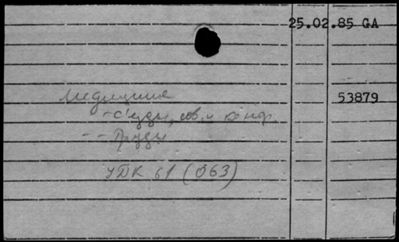 25.02.85 GA
Медицина 53879
- Съезды, сов. и конф.
- - Труды
УДК 61 (063)